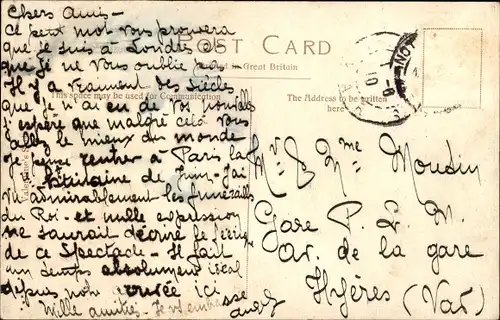 Chers Amis -
Ce petit mot vous prouvera
que je suis à Londres et
que je ne vous oublie pas -
Il y a vraiment des siècles
que je n'ai eu de vos nouvelles
J'espère que malgré cela vous
allez le mieux du monde
Je pense rentrer à Paris la
de Juin - J'ai
vu admirablement les funérailles
du Roi - et nulle expression
ne saurait décrire
de ce Spectacle - Il fait
un temps absolument idéal
depuis notre arrivée ici
Mille amitiés - Je vous embrasse
POST CARD
in Great Britain
This space may be used for Communication
The Address to be written
here
Mr & Mme Moudin
Gare P. L. M.
av. de la gare
Hyères (Var)